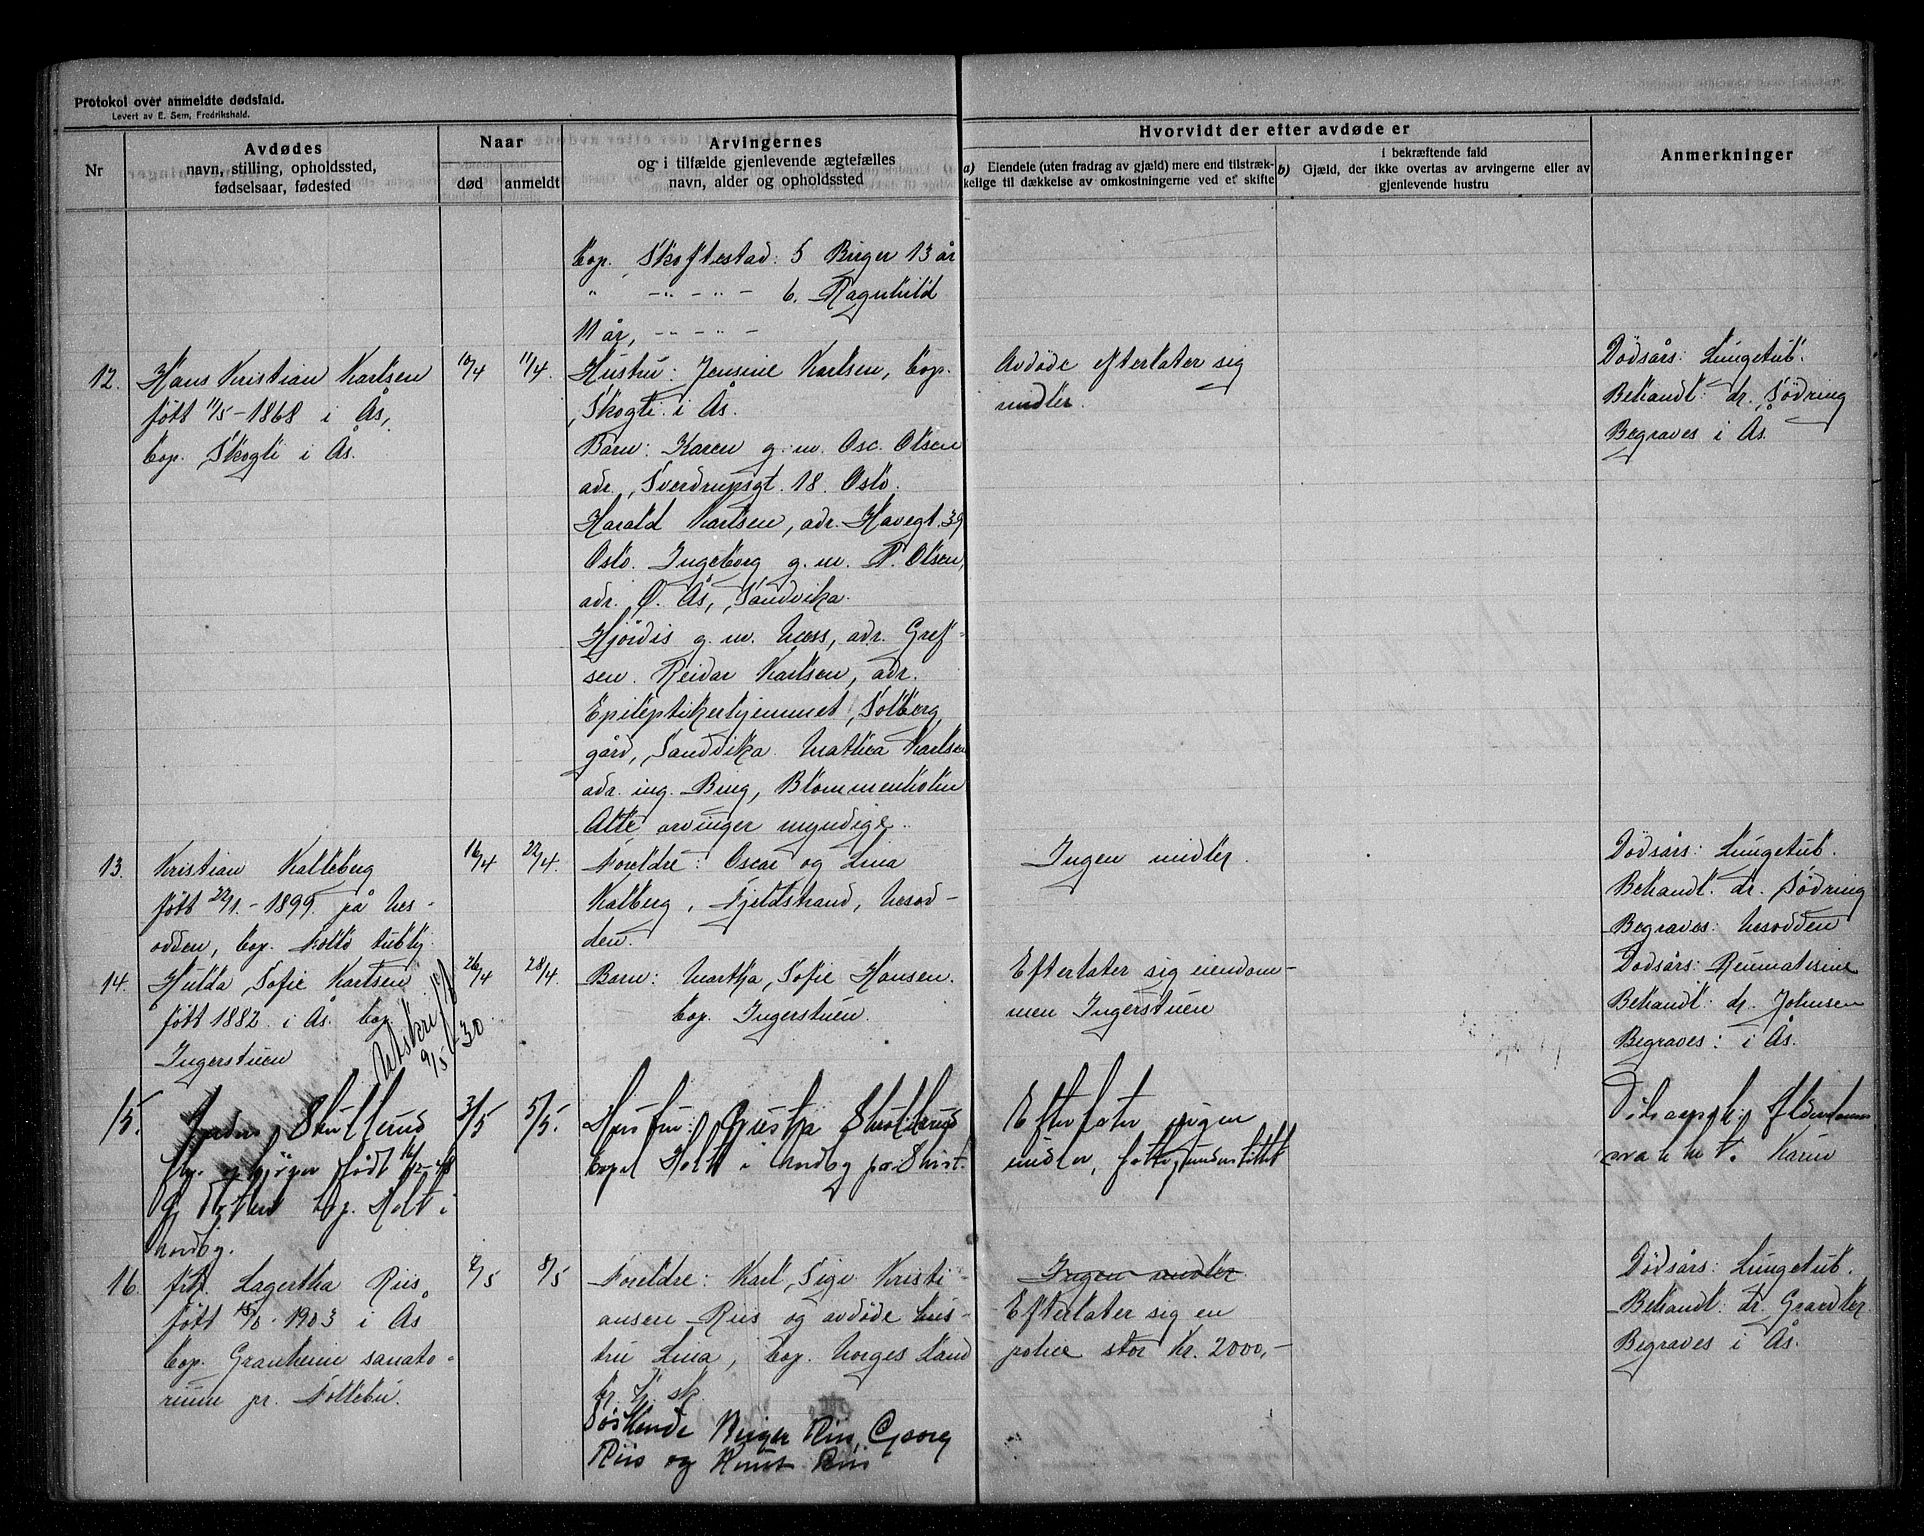 Protokol over anmeldte dødsfald.
Levert av E. Sem, Fredrikshald.
Nr
Avdødes
navn, stilling, opholdssted,
fødselsaar, fødested
Naar
død
anmeldt
Arvingernes
og i tilfælde gjenlevende ægtefælles
navn, alder og opholdssted
Hvorvidt der efter avdøde er
a) Eiendele (uten fradrag av gjæld) mere end tilstræk-
kelige til dækkelse av omkostningerne ved et skifte
b)
i bekræftende fald
Gjæld, der ikke overtas av arvingerne eller av
gjenlevende hustru
Anmerkninger
bop. Skoftestad: 5 Birger 13 år
" -"- -"- 6. Ragnhild
11 år, -"- -"-
12.
Hans Kristian Karlsen
født 11/5-1868 i Ås,
bop. Skogli i Ås.
10/4
11/4.
Hustru: Jensine Karlsen, bop.
Skogli i Ås.
Barn: Karen g. m. Osc. Olsen
adr. Sverdrupsgt. 18. Oslo.
Harald Karlsen, adr. Havegt. 39
Oslo. Ingeborg g. m. P. Olsen,
adr. Ø. Ås, Sandvika.
Hjørdis g. m. Næss, adr. Gref-
sen. Reidar Karlsen, adr.
Epileptikerhjemmet, Solberg
gård, Sandvika. Mathea Karlsen
adr. ing. Bing, Blommenholm
Alle arvinger myndige.
Avdøde efterlater sig
midler.
Dødsårs: Lungetub.
Behandl: dr. Södring
Begraves i Ås.
13.
Kristian Kalleberg
født 22/1.-1899. på Nes-
odden, bop. Follo tubhj.
16/4
22/4.
Foreldre: Oscar og Lina
Kalberg, Fjeldstrand, Nesod-
den.
Ingen midler.
Dødsårs: Lungetub.
Behandl. dr. Södring
Begraves: Nesodden
14.
Hulda Sofie Karlsen
født 1882. i Ås. bop.
Ingerstuen
Utskrift
9/5-30
26/4
28/4.
Barn: Martha Sofie Hansen.
bop. Ingerstuen.
Efterlater sig eiendom-
men Ingerstuen
Dødsårs: Reumatisme
Behandl: dr. Johnsen
Begraves: i Ås.
15.
Skullerud
født
bop. Holt i
Nordby.
3/5
5/5.
Hustru: Skullerud
bopel Holt i Nordby
Efterlater ingen
midler, fattigunderstøttet
16.
frk. Lagertha Riis
født 15/6-1903 i Ås
bop. Granheim sanato-
rium pr. Follebu.
2/5
8/5
Foreldre: Karl Sigv Kristi-
ansen Riis og avdøde hus-
tru Lina, bop. Norges Land
br. h. sk.
Söskende Birger Riis, Georg
Riis og Knut Riis
Ingen midler.
Efterlater sig en
police stor kr. 2000,-
Dødsårs: Lungetub.
Behandl: dr. Grandler
Begraves i Ås.